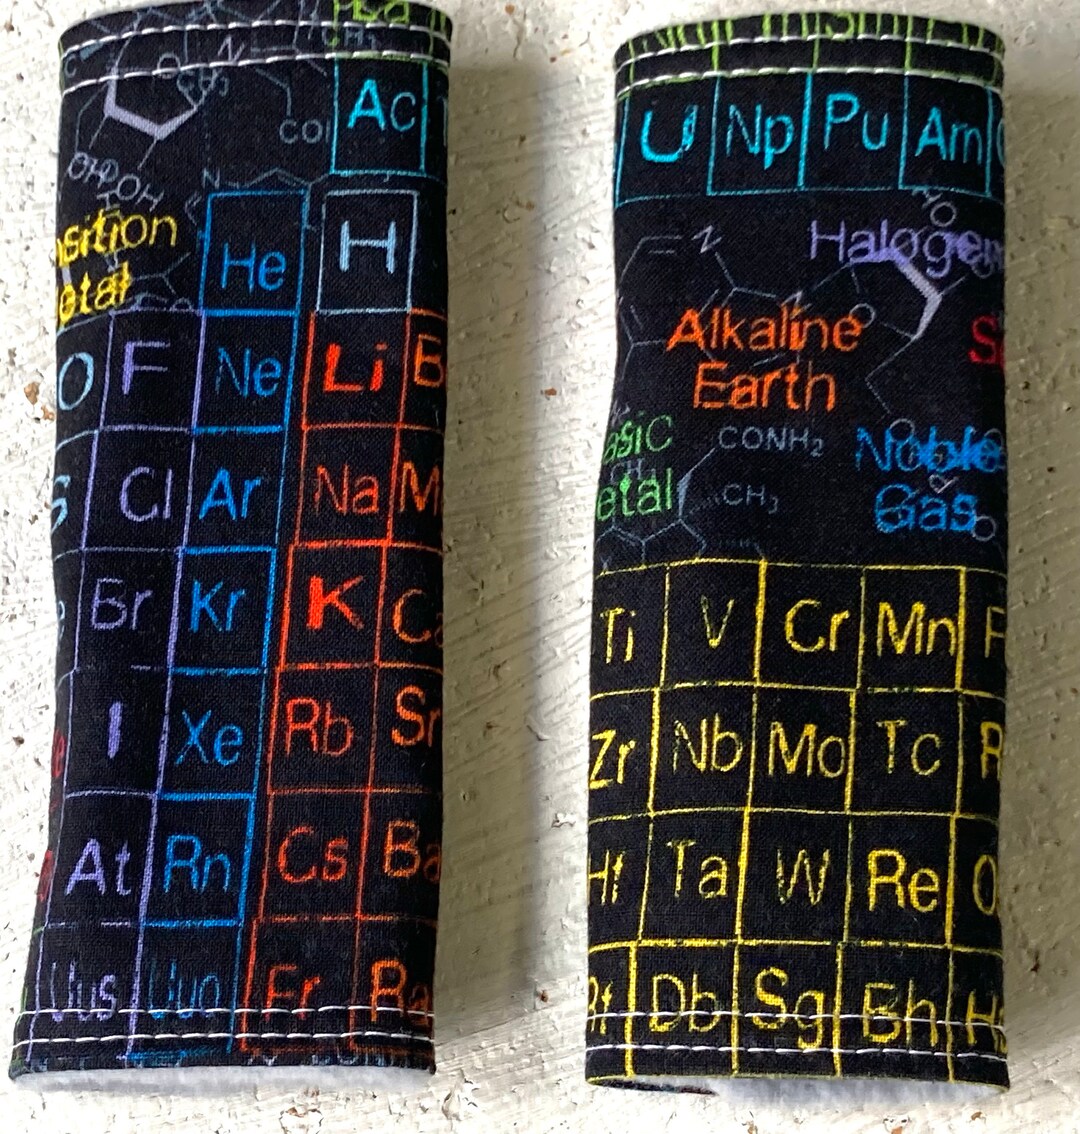 Ac
CH₃
N
OCH₃
COI
OH OH
N
nsition
etal
He
H
O F Ne Li B
S Cl Ar Na M
Br Kr K Ca
I Xe Rb Sr
At Rn Cs Ba
Uus Uuo Fr Ra
U Np Pu Am
HO
N
Halogen
N
Alkaline
Earth
S
asic
etal
CONH₂
CH₃
CH₃
Noble
Gas
Ti V Cr Mn F
Zr Nb Mo Tc R
Hf Ta W Re O
Rf Db Sg Bh Hs